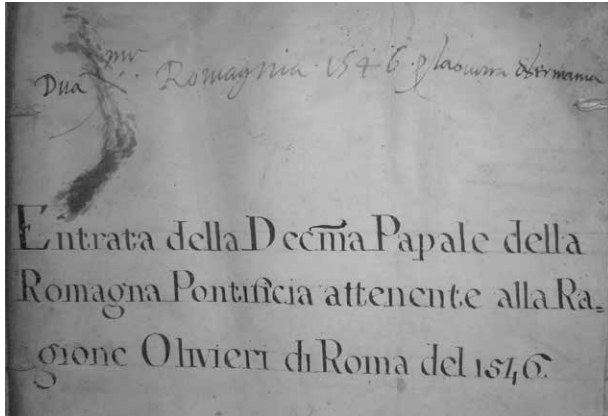 Dua
Romagnia 1546 p la guerra d Germania
Entrata della Decm̃a Papale della
Romagna Pontificia attenente alla Ra=
gione Olivieri di Roma del 1546.